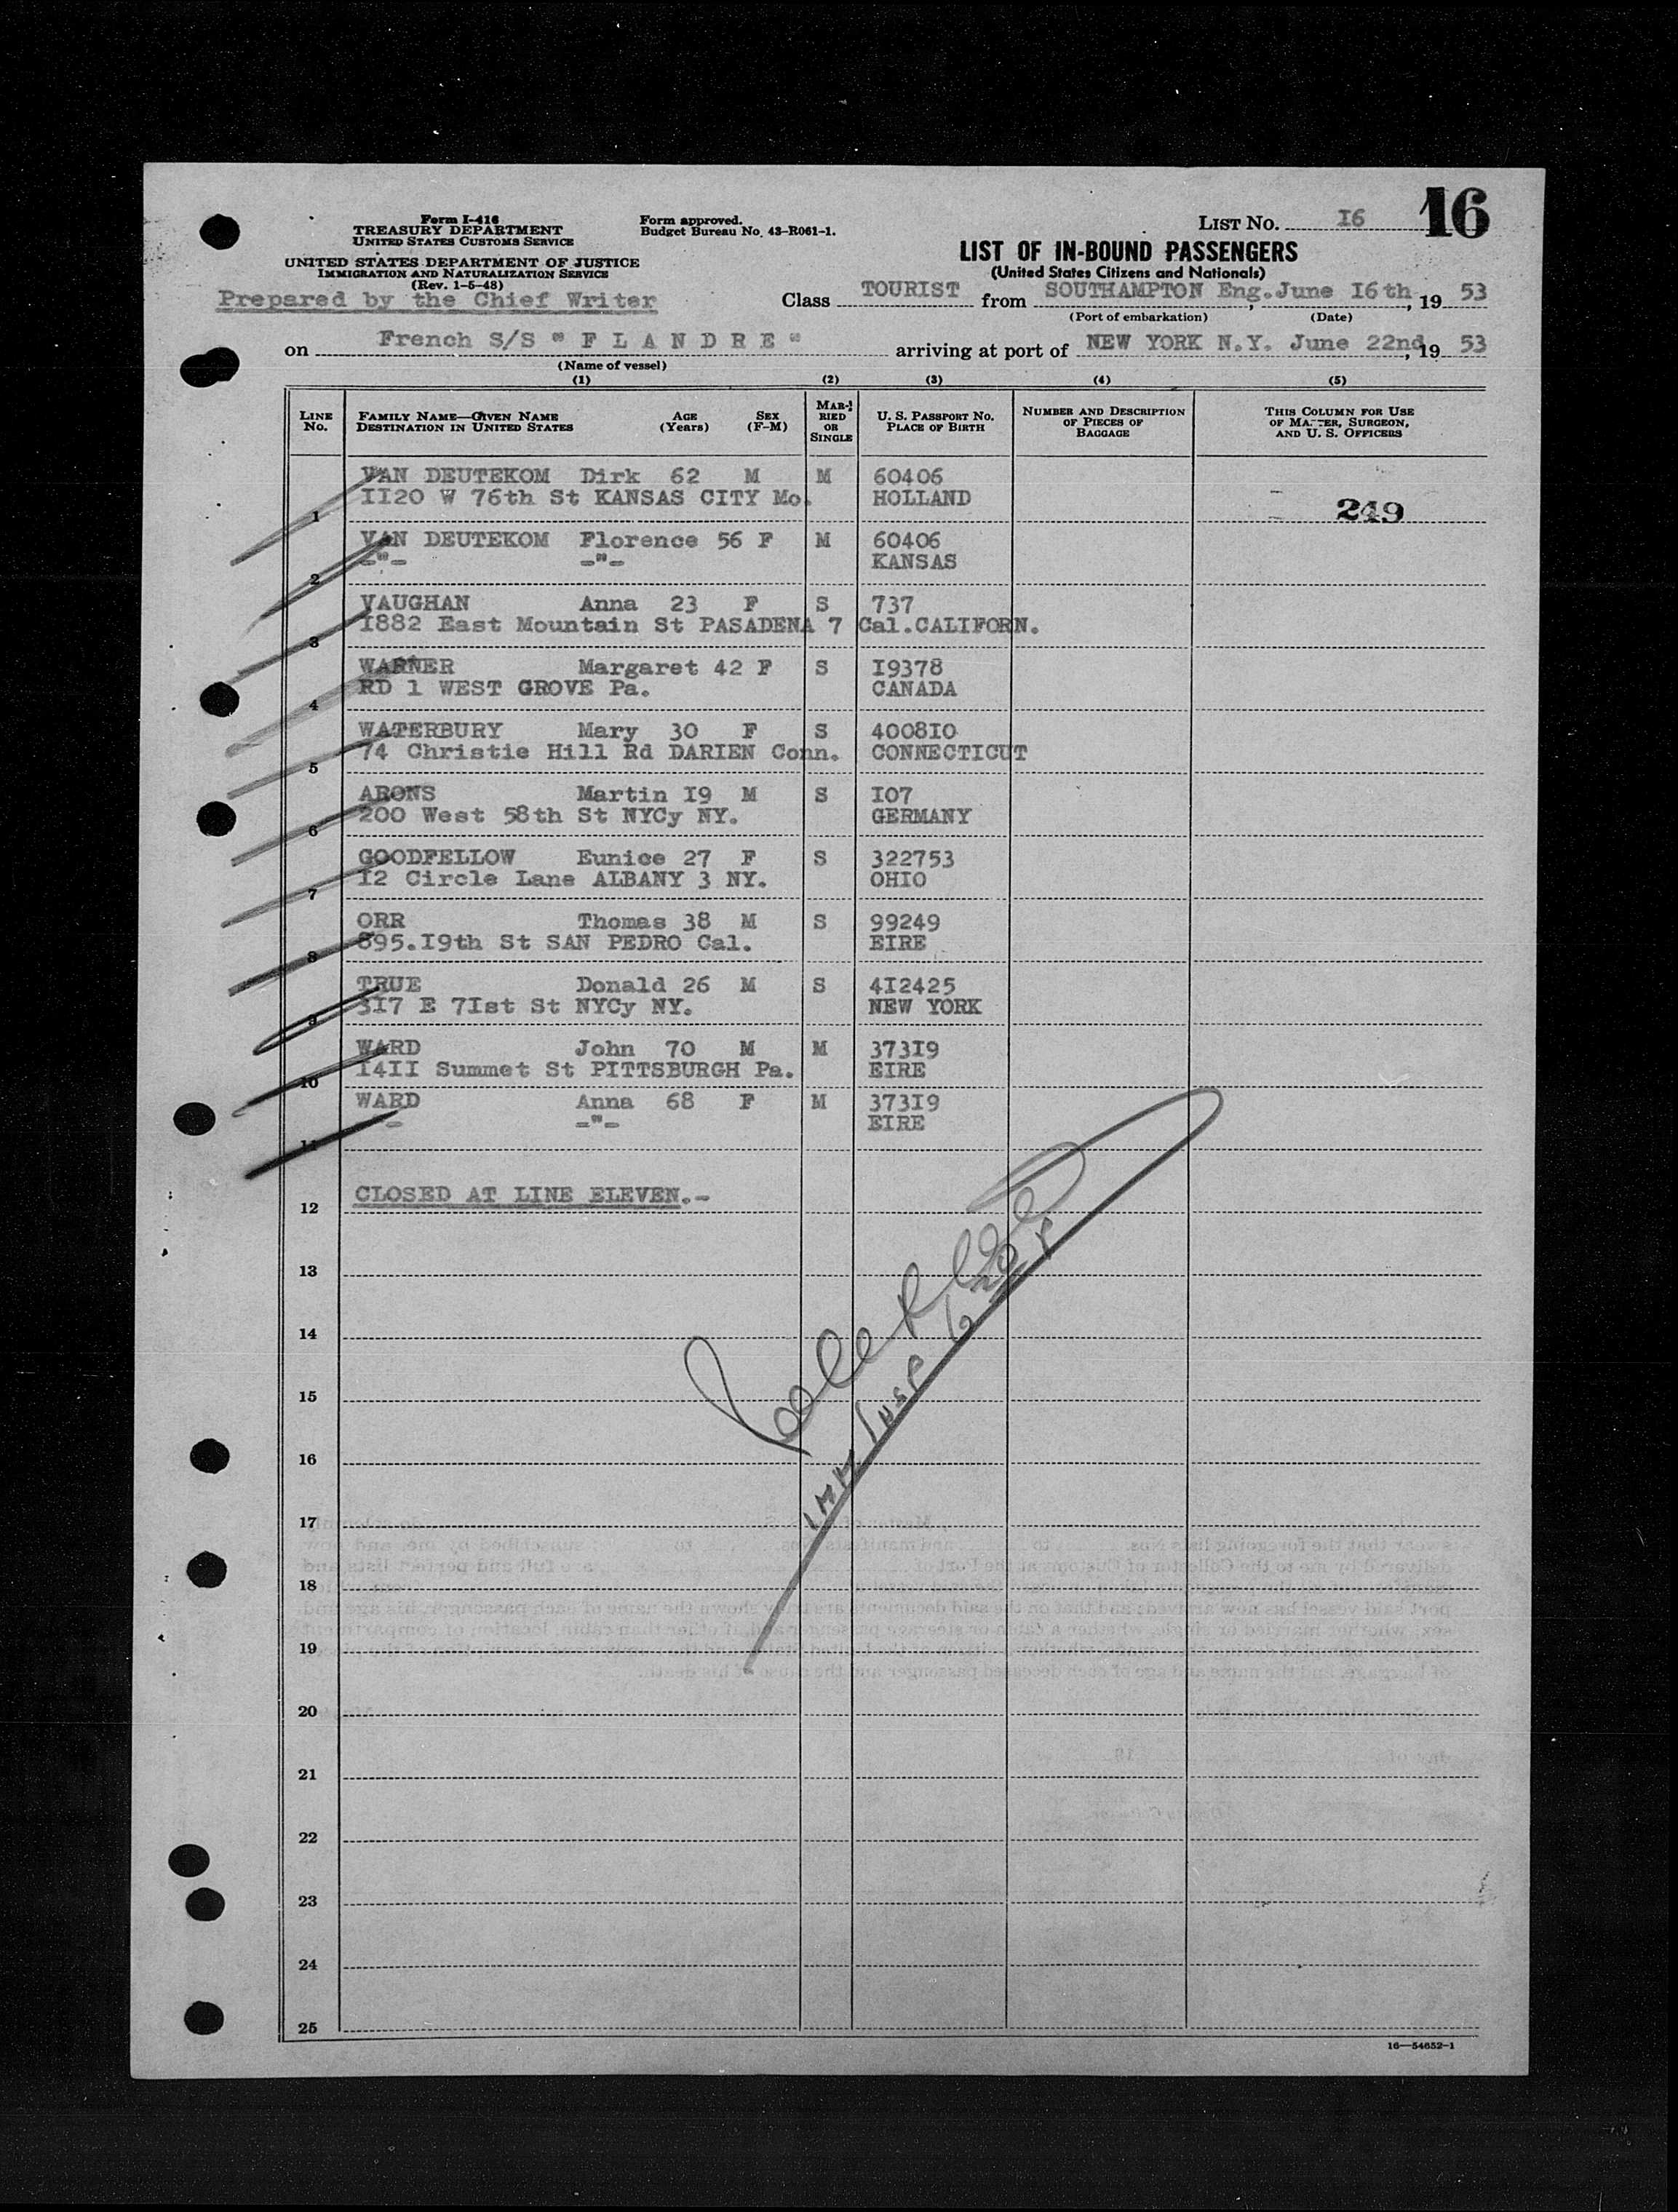 Form I-416
TREASURY DEPARTMENT
UNITED STATES CUSTOMS SERVICE
UNITED STATES DEPARTMENT OF JUSTICE
IMMIGRATION AND NATURALIZATION SERVICE
(Rev. 1-5-48)
Prepared by the Chief Writer
Form approved.
Budget Bureau No. 43-R061-1.
LIST NO. I6
16
LIST OF IN-BOUND PASSENGERS
(United States Citizens and Nationals)
Class TOURIST from SOUTHAMPTON Eng., June I6th, 19 53
(Port of embarkation) (Date)
on French S/S " F L A N D R E " arriving at port of NEW YORK N.Y. June 22nd, 19 53
(Name of vessel)
(1) (2) (3) (4) (5)
LINE NO. FAMILY NAME—GIVEN NAME DESTINATION IN UNITED STATES AGE (Years) SEX (F-M) MARRIED OR SINGLE U. S. PASSPORT NO. PLACE OF BIRTH NUMBER AND DESCRIPTION OF PIECES OF BAGGAGE THIS COLUMN FOR USE OF MASTER, SURGEON, AND U. S. OFFICERS
VAN DEUTEKOM Dirk 62 M M 60406
1 II20 W 76th St KANSAS CITY Mo. HOLLAND 249
VAN DEUTEKOM Florence 56 F M 60406
2 -"- -"- KANSAS
VAUGHAN Anna 23 F S 737
3 I882 East Mountain St PASADENA 7 Cal. CALIFORN.
WARNER Margaret 42 F S I9378
4 RD 1 WEST GROVE Pa. CANADA
WATERBURY Mary 30 F S 4008I0
5 74 Christie Hill Rd DARIEN Conn. CONNECTICUT
ARONS Martin I9 M S I07
6 200 West 58th St NYCy NY. GERMANY
GOODFELLOW Eunice 27 F S 322753
7 I2 Circle Lane ALBANY 3 NY. OHIO
ORR Thomas 38 M S 99249
8 895.I9th St SAN PEDRO Cal. EIRE
TRUE Donald 26 M S 4I2425
9 3I7 E 7Ist St NYCy NY. NEW YORK
WARD John 70 M M 373I9
10 I4II Summet St PITTSBURGH Pa. EIRE
WARD Anna 68 F M 373I9
11 - -"- EIRE
12 CLOSED AT LINE ELEVEN.-
13
14
15
16
17
18
19
20
21
22
23
24
25
16—54652-1